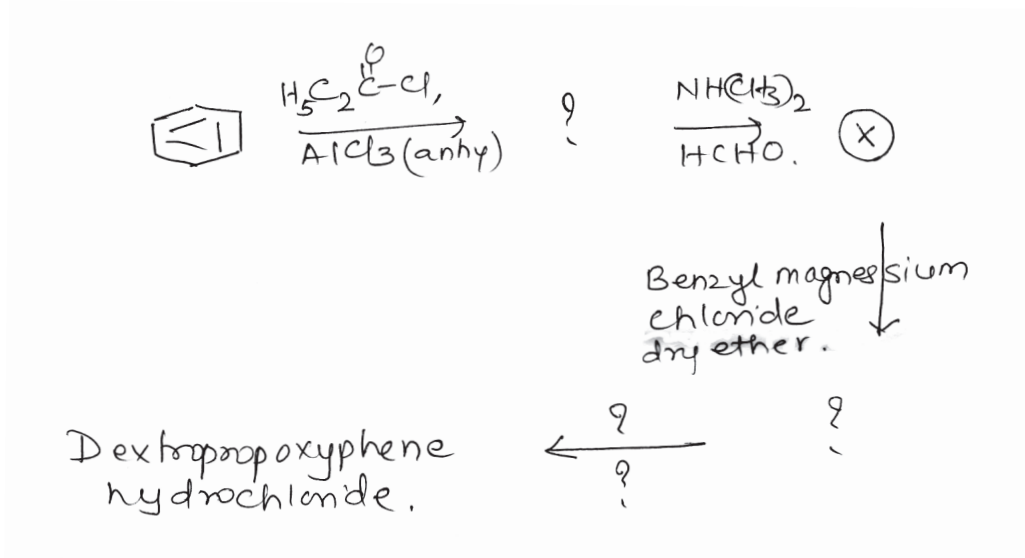 O
H5C2C-Cl,
AlCl3 (anhy)
?
NH(CH3)2
HCHO.
X
Benzyl magnessium
chloride
dry ether.
?
?
?
Dextropropoxyphene
hydrochloride.